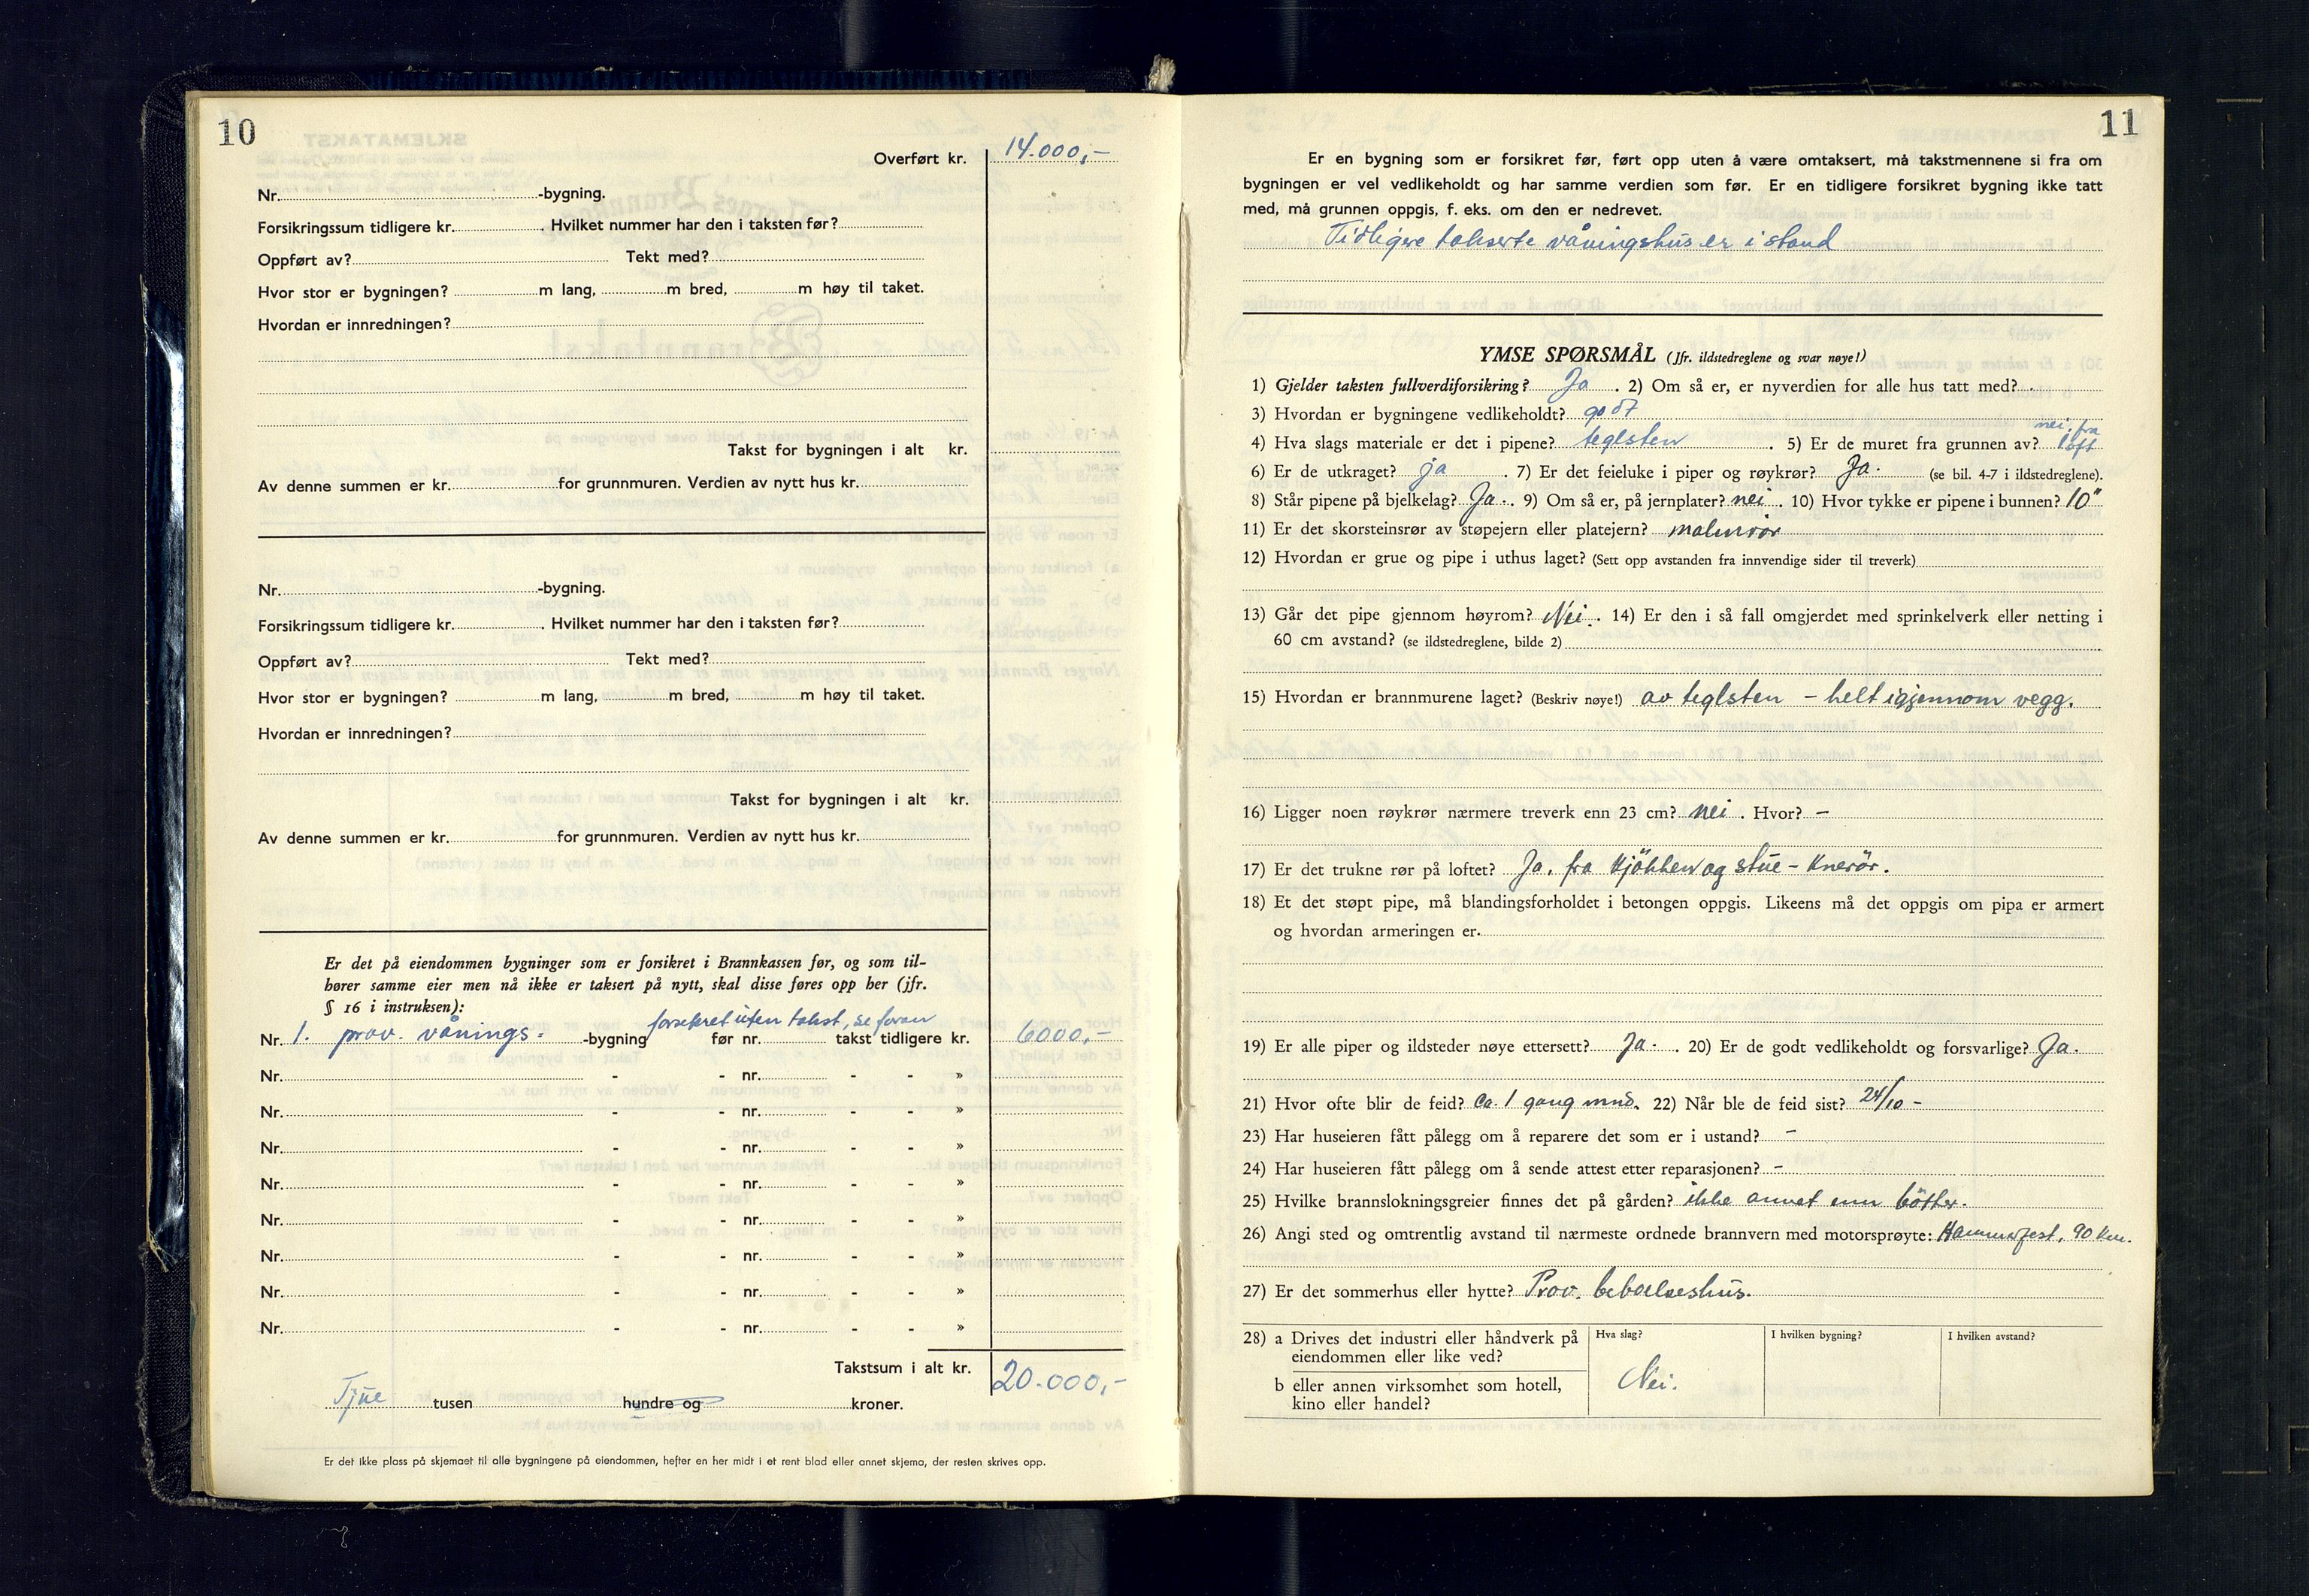 10
Overført kr. 14.000,-
Nr. -bygning.
Forsikringssum tidligere kr. . Hvilket nummer har den i taksten før?
Oppført av? Tekt med?
Hvor stor er bygningen? m lang, m bred, m høy til taket.
Hvordan er innredningen?
Takst for bygningen i alt kr.
Av denne summen er kr. for grunnmuren. Verdien av nytt hus kr.
Nr. -bygning.
Forsikringssum tidligere kr. . Hvilket nummer har den i taksten før?
Oppført av? Tekt med?
Hvor stor er bygningen? m lang, m bred, m høy til taket.
Hvordan er innredningen?
Takst for bygningen i alt kr.
Av denne summen er kr. for grunnmuren. Verdien av nytt hus kr.
Er det på eiendommen bygninger som er forsikret i Brannkassen før, og som til-
hører samme eier men nå ikke er taksert på nytt, skal disse føres opp her (jfr.
§ 16 i instruksen):
forsekret uten takst, se foran
Nr. 1. prov. vånings- -bygning før nr. takst tidligere kr. 6000,-
Nr. - - nr. - - »
Nr. - - nr. - - »
Nr. - - nr. - - »
Nr. - - nr. - - »
Nr. - - nr. - - »
Nr. - - nr. - - »
Nr. - - nr. - - »
Nr. - - nr. - - »
Takstsum i alt kr. 20.000,-
Tjue tusen hundre og kroner.
Er det ikke plass på skjemaet til alle bygningene på eiendommen, hefter en her midt i et rent blad eller annet skjema, der resten skrives opp.
11
Er en bygning som er forsikret før, ført opp uten å være omtaksert, må takstmennene si fra om
bygningen er vel vedlikeholdt og har samme verdien som før. Er en tidligere forsikret bygning ikke tatt
med, må grunnen oppgis, f. eks. om den er nedrevet.
Tidligere takserte våningshus er i stand
YMSE SPØRSMÅL (Jfr. ildstedreglene og svar nøye!)
1) Gjelder taksten fullverdiforsikring? Ja . 2) Om så er, er nyverdien for alle hus tatt med? .
3) Hvordan er bygningene vedlikeholdt? godt
4) Hva slags materiale er det i pipene? teglsten . 5) Er de muret fra grunnen av? nei, fra loft
6) Er de utkraget? ja . 7) Er det feieluke i piper og røykrør? Ja. (se bil. 4-7 i ildstedreglene).
8) Står pipene på bjelkelag? Ja. . 9) Om så er, på jernplater? nei . 10) Hvor tykke er pipene i bunnen? 10"
11) Er det skorsteinsrør av støpejern eller platejern? malmrör
12) Hvordan er grue og pipe i uthus laget? (Sett opp avstanden fra innvendige sider til treverk)
13) Går det pipe gjennom høyrom? Nei. . 14) Er den i så fall omgjerdet med sprinkelverk eller netting i
60 cm avstand? (se ildstedreglene, bilde 2)
15) Hvordan er brannmurene laget? (Beskriv nøye!) av teglsten - helt igjennom vegg.
16) Ligger noen røykrør nærmere treverk enn 23 cm? nei . Hvor? -
17) Er det trukne rør på loftet? Ja, fra kjökken og stue - knerör.
18) Et det støpt pipe, må blandingsforholdet i betongen oppgis. Likeens må det oppgis om pipa er armert
og hvordan armeringen er.
19) Er alle piper og ildsteder nøye ettersett? Ja. . 20) Er de godt vedlikeholdt og forsvarlige? Ja.
21) Hvor ofte blir de feid? Ca. 1 gang mnd. 22) Når ble de feid sist? 24/10 -
23) Har huseieren fått pålegg om å reparere det som er i ustand? -
24) Har huseieren fått pålegg om å sende attest etter reparasjonen? -
25) Hvilke brannslokningsgreier finnes det på gården? ikke annet enn bötter.
26) Angi sted og omtrentlig avstand til nærmeste ordnede brannvern med motorsprøyte: Hammerfest, 90 km.
27) Er det sommerhus eller hytte? Prov. beboelseshus.
28) a Drives det industri eller håndverk på Hva slag? I hvilken bygning? I hvilken avstand?
eiendommen eller like ved?
Nei.
b eller annen virksomhet som hotell,
kino eller handel?